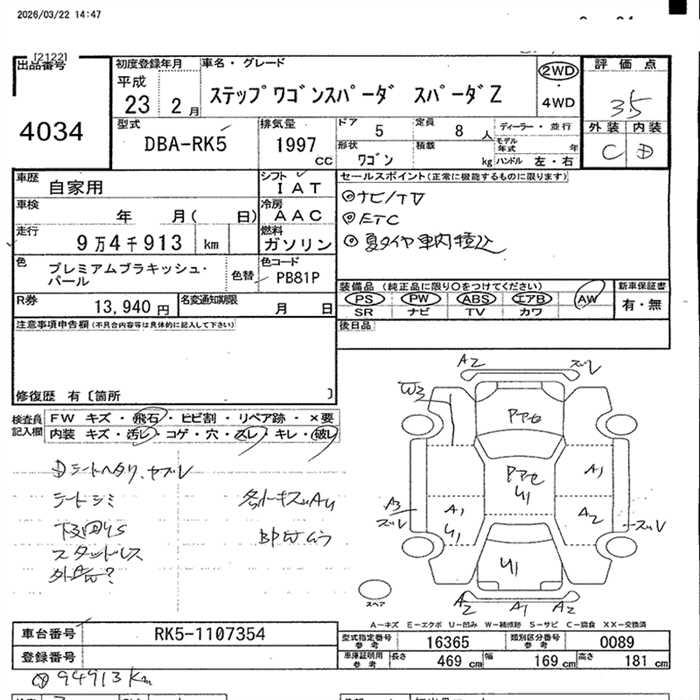 2026/03/22 14:47
[2122]
出品番号
4034
初度登録年月
平成
23 2月
車名・グレード
ステップワゴンスパーダ スパーダZ
2WD
・
4WD
評価点
3.5
外装 内装
C D
型式
DBA-RK5
排気量
1997
cc
ドア 5
定員 8 人
形状 ワゴン
積載 kg
ディーラー・並行
モデル年式 年
ハンドル 左・右
車歴
自家用
シフト
IAT
車検
年 月( 日)
冷房
AAC
走行
9万4千913 km
燃料
ガソリン
色
プレミアムブラキッシュ・パール
色替
色コード
PB81P
R券
13,940円
名変通知期限
月 日
セールスポイント(正常に機能するものに限ります)
◎ナビ/TV
◎ETC
◎夏タイヤ車内積込
装備品 (純正品に限り○をつけてください)
PS PW ABS エアB AW
SR ナビ TV カワ
新車保証書
有・無
注意事項申告欄(不具合内容等は具体的に記入して下さい)
後日品
修復歴 有〔箇所 〕
検査員記入欄
FW キズ・飛石・ヒビ割・リペア跡・×要
内装 キズ・汚レ・コゲ・穴・スレ・キレ・破レ
シートヘタリ、ヤブレ
シートシミ
スタッドレス
A2
ズレ
W3
A1
A3
ズレ
A1
U1
U1
A2
ズレ
U1
A2 A1 A2
スペア
A-キズ E-エクボ U-凹み W-補修跡 S-サビ C-腐食 XX-交換済
車台番号
RK5-1107354
登録番号
型式指定番号 参考
16365
類別区分番号 参考
0089
車庫証明用 参考
長さ 469 cm
幅 169 cm
高さ 181 cm
94913Km